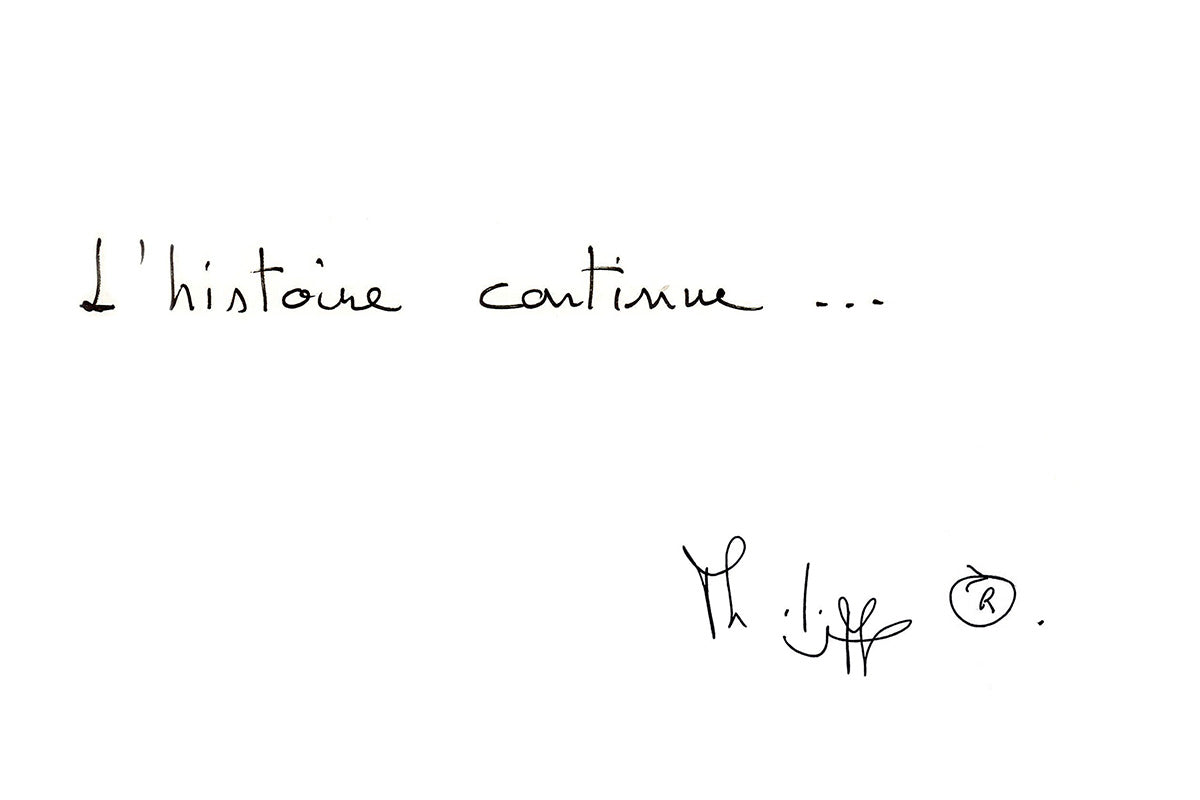 L'histoire continue ...
Philippe R.